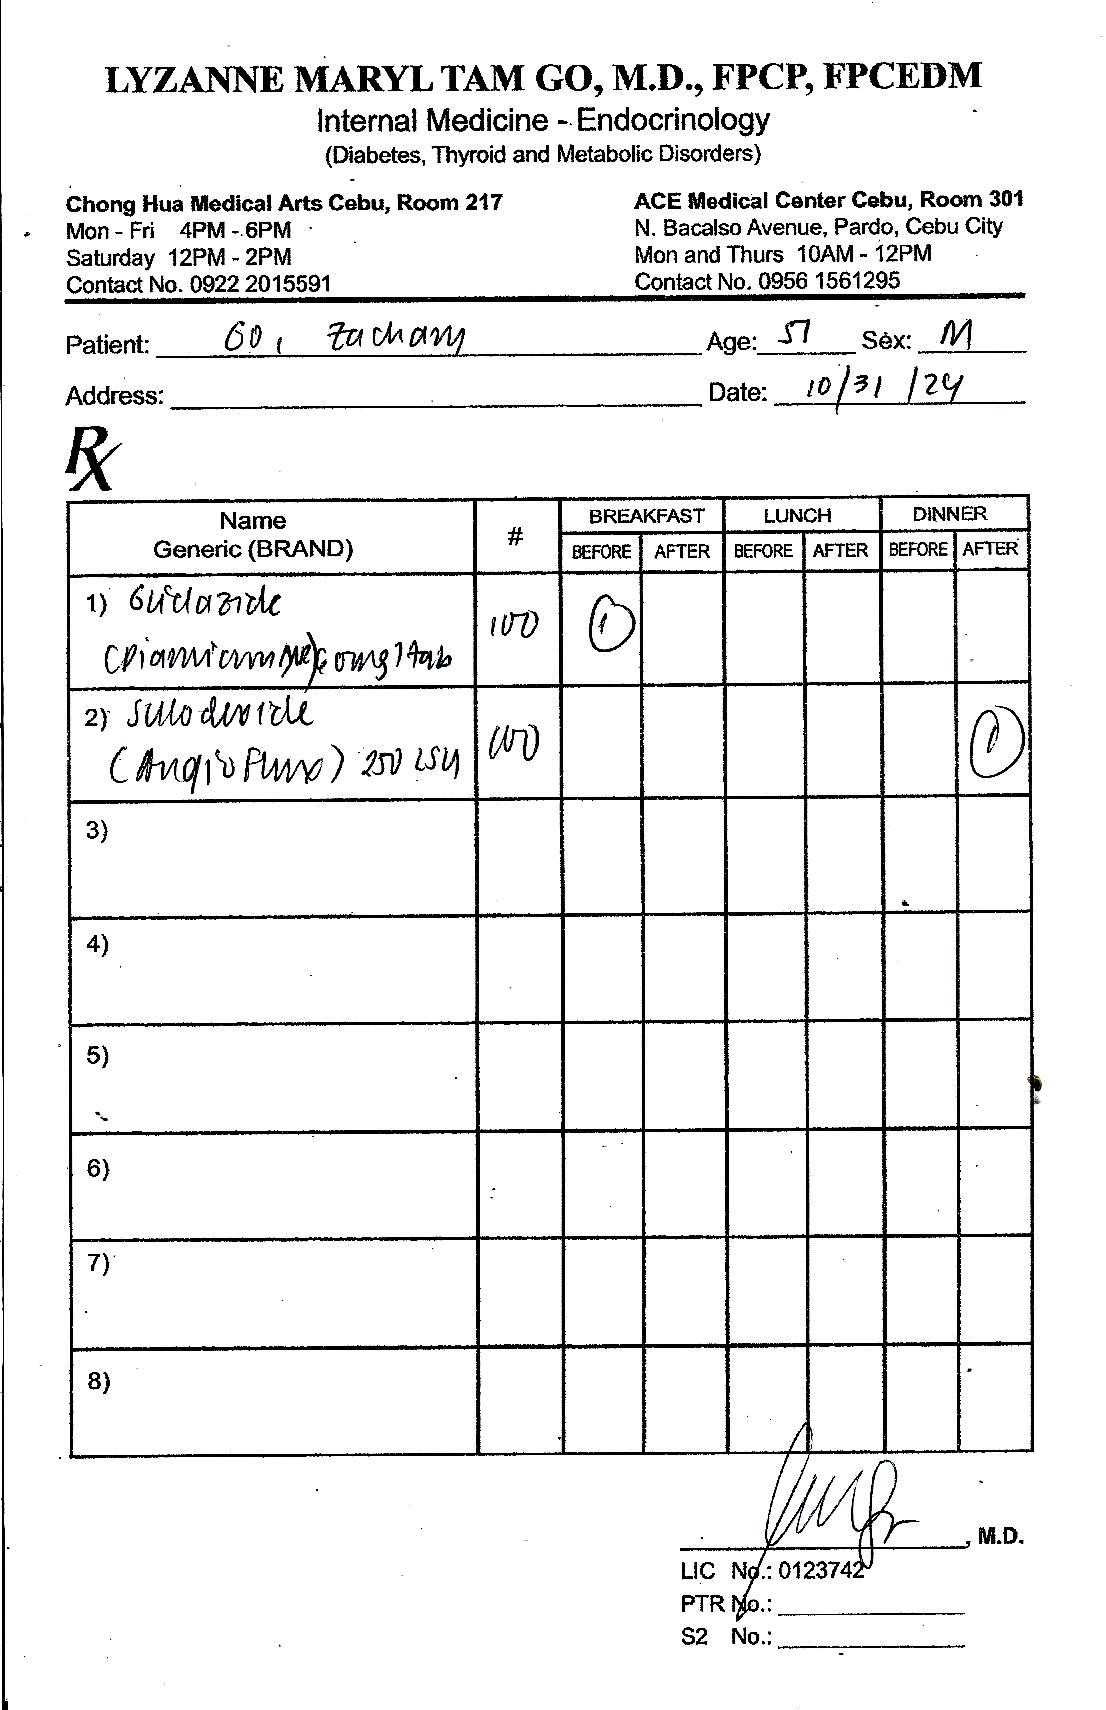 LYZANNE MARYL TAM GO, M.D., FPCP, FPCEDM
Internal Medicine - Endocrinology
(Diabetes, Thyroid and Metabolic Disorders)
Chong Hua Medical Arts Cebu, Room 217
Mon - Fri 4PM - 6PM
Saturday 12PM - 2PM
Contact No. 0922 2015591
ACE Medical Center Cebu, Room 301
N. Bacalso Avenue, Pardo, Cebu City
Mon and Thurs 10AM - 12PM
Contact No. 0956 1561295
Patient: Go, Zachary Age: 51 Sex: M
Address: Date: 10/31/24
Rx
Name
Generic (BRAND) # BREAKFAST LUNCH DINNER
BEFORE AFTER BEFORE AFTER BEFORE AFTER
1) Gliclazide 100 1
(Diamicron MR) 60mg 1 tab
2) Sulodexide 100 1
(Angioflux) 250 LSU
3)
4)
5)
6)
7)
8)
, M.D.
LIC No.: 0123742
PTR No.:
S2 No.: